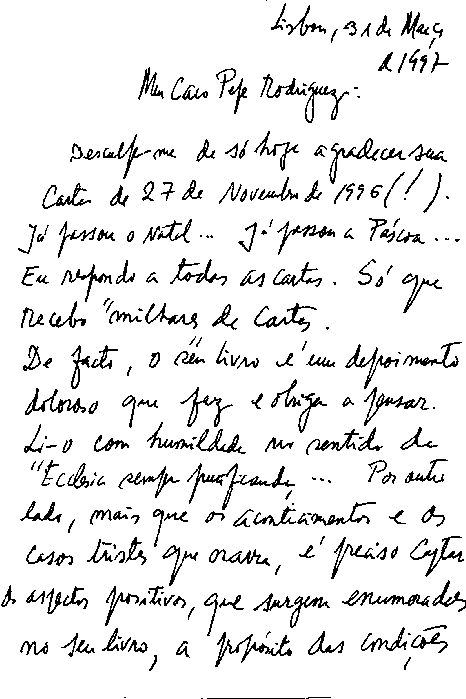 Lisboa, 31 de Março
de 1997
Meu Caro Pepe Rodriguez:
Desculpe-me de só hoje agradecer sua
Carta de 27 de Novembro de 1996 (!).
Já passou o Natal... Já passou a Páscoa...
Eu respondo a todas as cartas. Só que
recebo "milhares de Cartas.
De facto, o seu livro é um depoimento
doloroso que faz e obriga a pensar.
Li-o com humildade no sentido da
"Ecclesia semper purificanda"... Por outro
lado, mais que os acontecimentos e os
casos tristes que, é preciso Captar
os aspectos positivos, que surgem enumerados
no seu livro, a propósito das condições